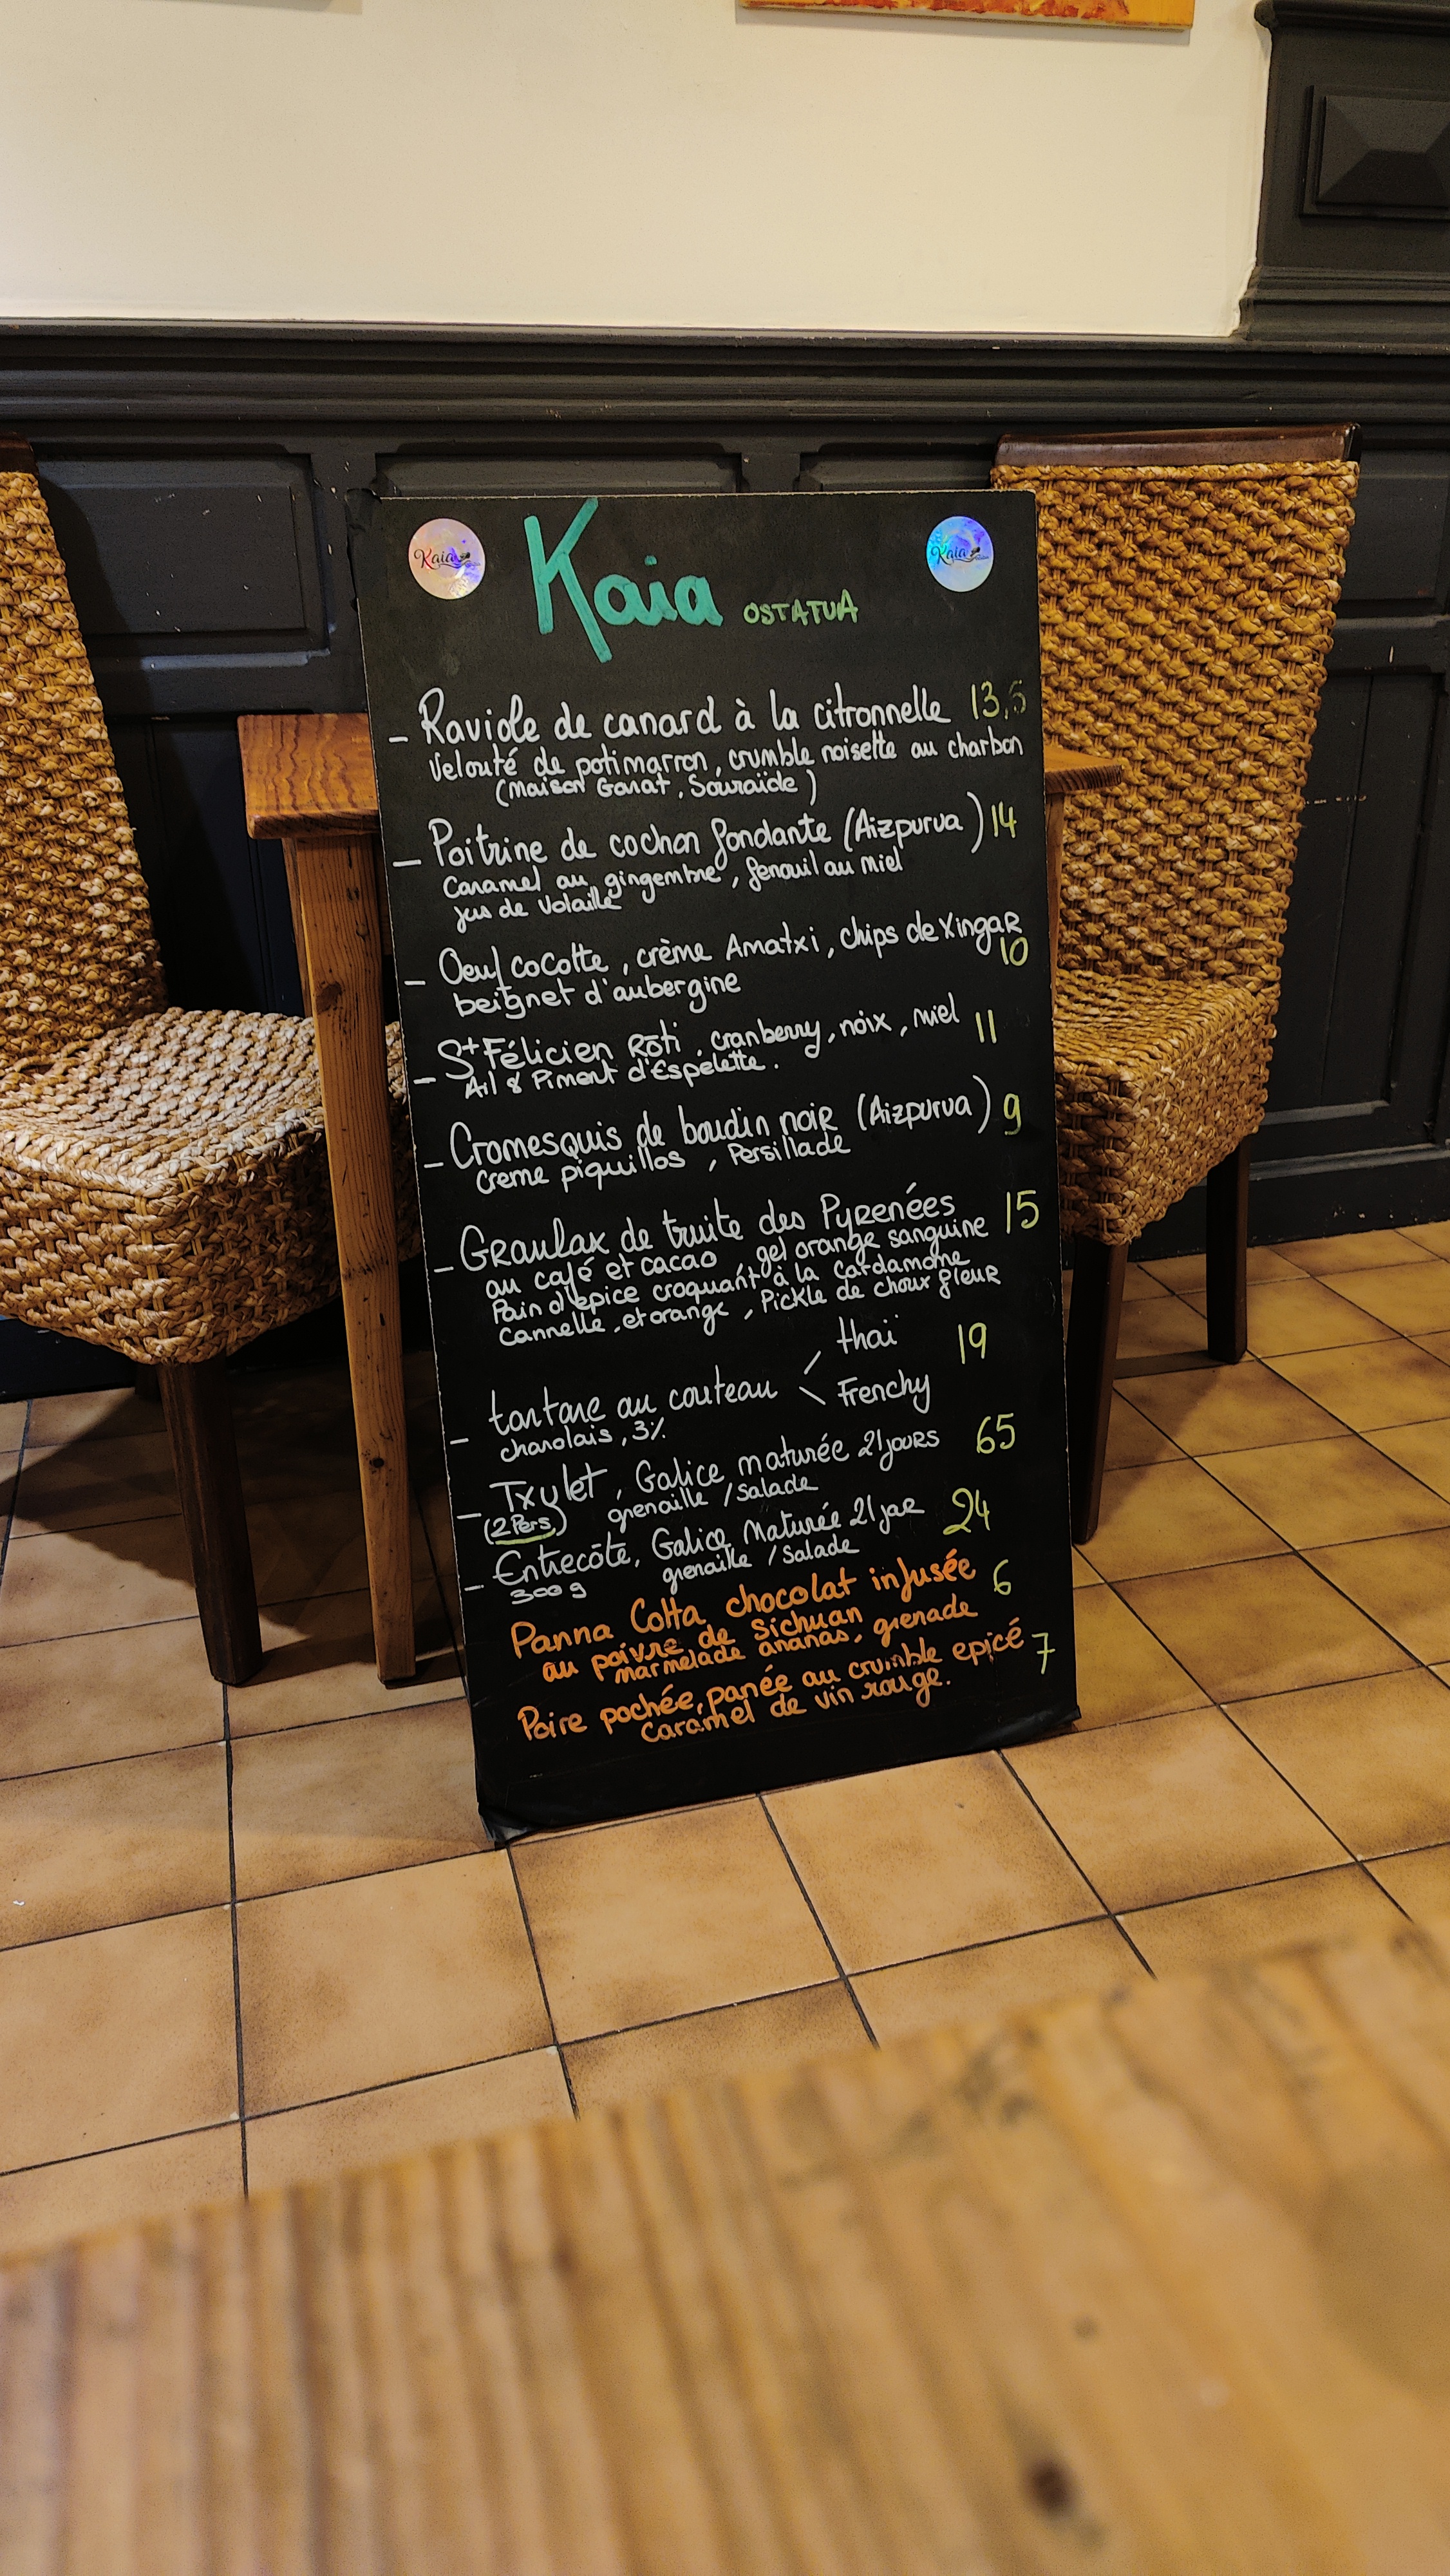 Kaia
Kaia
Kaia OSTATUA
- Raviole de canard à la citronnelle 13,5
Velouté de potimarron, crumble noisette au charbon
(Maison Ganat, Souraïde)
- Poitrine de cochon fondante (Aizpurua) 14
Caramel au gingembre, fenouil au miel
jus de volaille
- Oeuf cocotte, crème Amatxi, chips de XingaR
10
beignet d'aubergine
- St Félicien Rôti, cranberry, noix, miel 11
Ail & Piment d'Espelette.
- Cromesquis de boudin noir (Aizpurua) 9
creme piquillos, Persillade
- Gravlax de truite des Pyrenées 15
au café et cacao, gel orange sanguine
Pain d'épice croquant à la Cardamone
Cannelle, et orange, Pickle de choux fleur
thaï
- tartare au couteau 19
Frenchy
charolais, 3%
- Txulet, Galice maturée 21 jours 65
(2 Pers) grenaille / salade
- Entrecôte, Galice Maturée 21 jar 24
300 g grenaille / Salade
Panna Cotta chocolat infusée 6
au poivre de Sichuan
marmelade ananas, grenade
Poire pochée, panée au crumble epicé 7
Caramel de vin rouge.